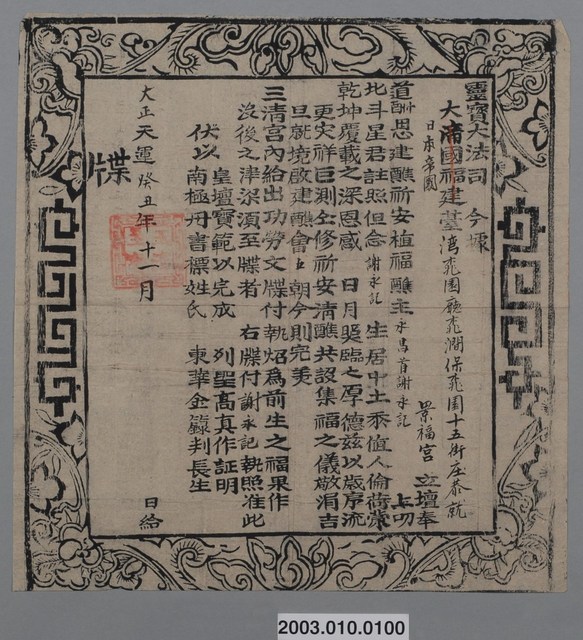 靈寶大法司　今據
大清國福建臺灣桃園廳桃澗保桃園十五街庄恭就
日本帝國
景福宮　立壇奉
道酬恩建醮祈安植福醮主永昌首謝永記　上叨
北斗星君註照但念謝永記　生居中土忝值人倫荷蒙
乾坤覆載之深恩感　日月照臨之厚德茲以歲序流
更災祥叵測仝修祈安清醮共設集福之儀敬涓吉
旦就境啟建醮會五朝今則完美
三清宮內給出功勞文牒付執炤為前生之福果作
沒後之津深湏至牒者　右牒付謝永記執照准此
伏以　皇壇寶範以完成　列聖高真作証明
南極丹書標姓氏　東華金籙判長生
大正天運癸丑年十一月　日給
牒
2003.010.0100